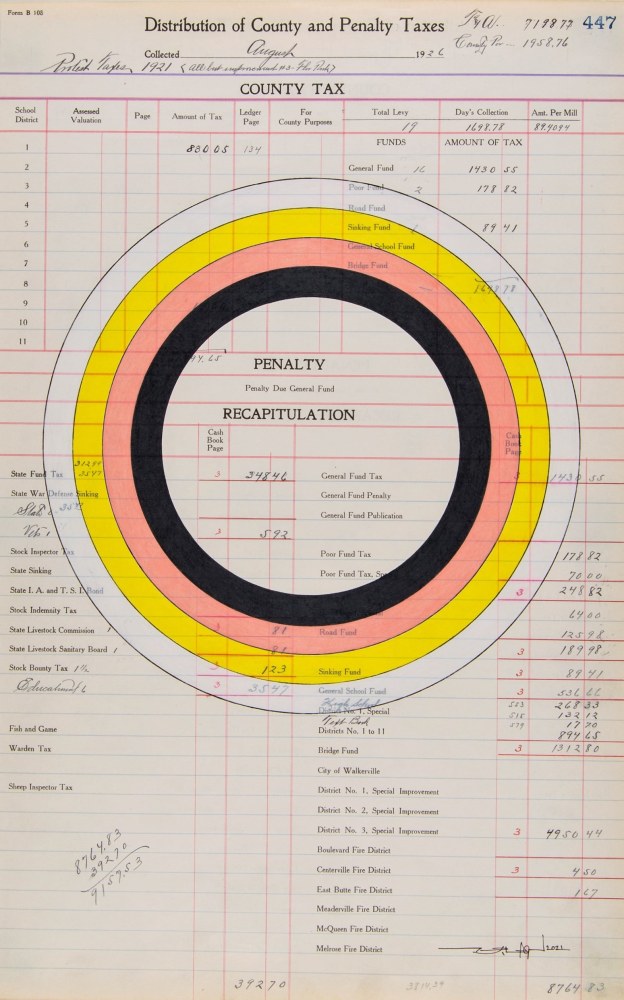 Form B 105
Distribution of County and Penalty Taxes
7198.77 447
Collected August 1926
1958.76
Protest Taxes 1921
COUNTY TAX
School District Assessed Valuation Page Amount of Tax Ledger Page For County Purposes Total Levy Day's Collection Amt. Per Mill
19 1698.78 89.4094
FUNDS AMOUNT OF TAX
1 830 05 134
2 General Fund 16 1430 55
3 Poor Fund 2 178 82
4 Road Fund
5 Sinking Fund 1 89 41
6 General School Fund
7 Bridge Fund
8 1698.78
9
10
11
PENALTY
Penalty Due General Fund
RECAPITULATION
Cash Book Page Cash Book Page
State Fund Tax 3547 3 348 46 General Fund Tax 3 1430 55
State War Defense Sinking General Fund Penalty
General Fund Publication
3 592
Stock Inspector Tax Poor Fund Tax 178 82
State Sinking Poor Fund Tax, 70 00
State I. A. and T. S. I. Board 3 248 82
Stock Indemnity Tax 64 00
State Livestock Commission 1 Road Fund 125 98
State Livestock Sanitary Board 1 3 189 98
Stock Bounty Tax 1 1/2 3 123 Sinking Fund 3 89 41
Educational 6 3 3547 General School Fund 3 536 66
High School 503 268 33
No. 1, Special 515 132 12
Text Book 539 17 70
Districts No. 1 to 11 894 65
Fish and Game
Bridge Fund 3 1312 80
Warden Tax
City of Walkerville
Sheep Inspector Tax District No. 1, Special Improvement
District No. 2, Special Improvement
District No. 3, Special Improvement 3 4950 44
8764.83
392 70
9157.53
Boulevard Fire District
Centerville Fire District 3 4 50
East Butte Fire District 1 67
Meaderville Fire District
McQueen Fire District
Melrose Fire District
2021
392 70 8764 83